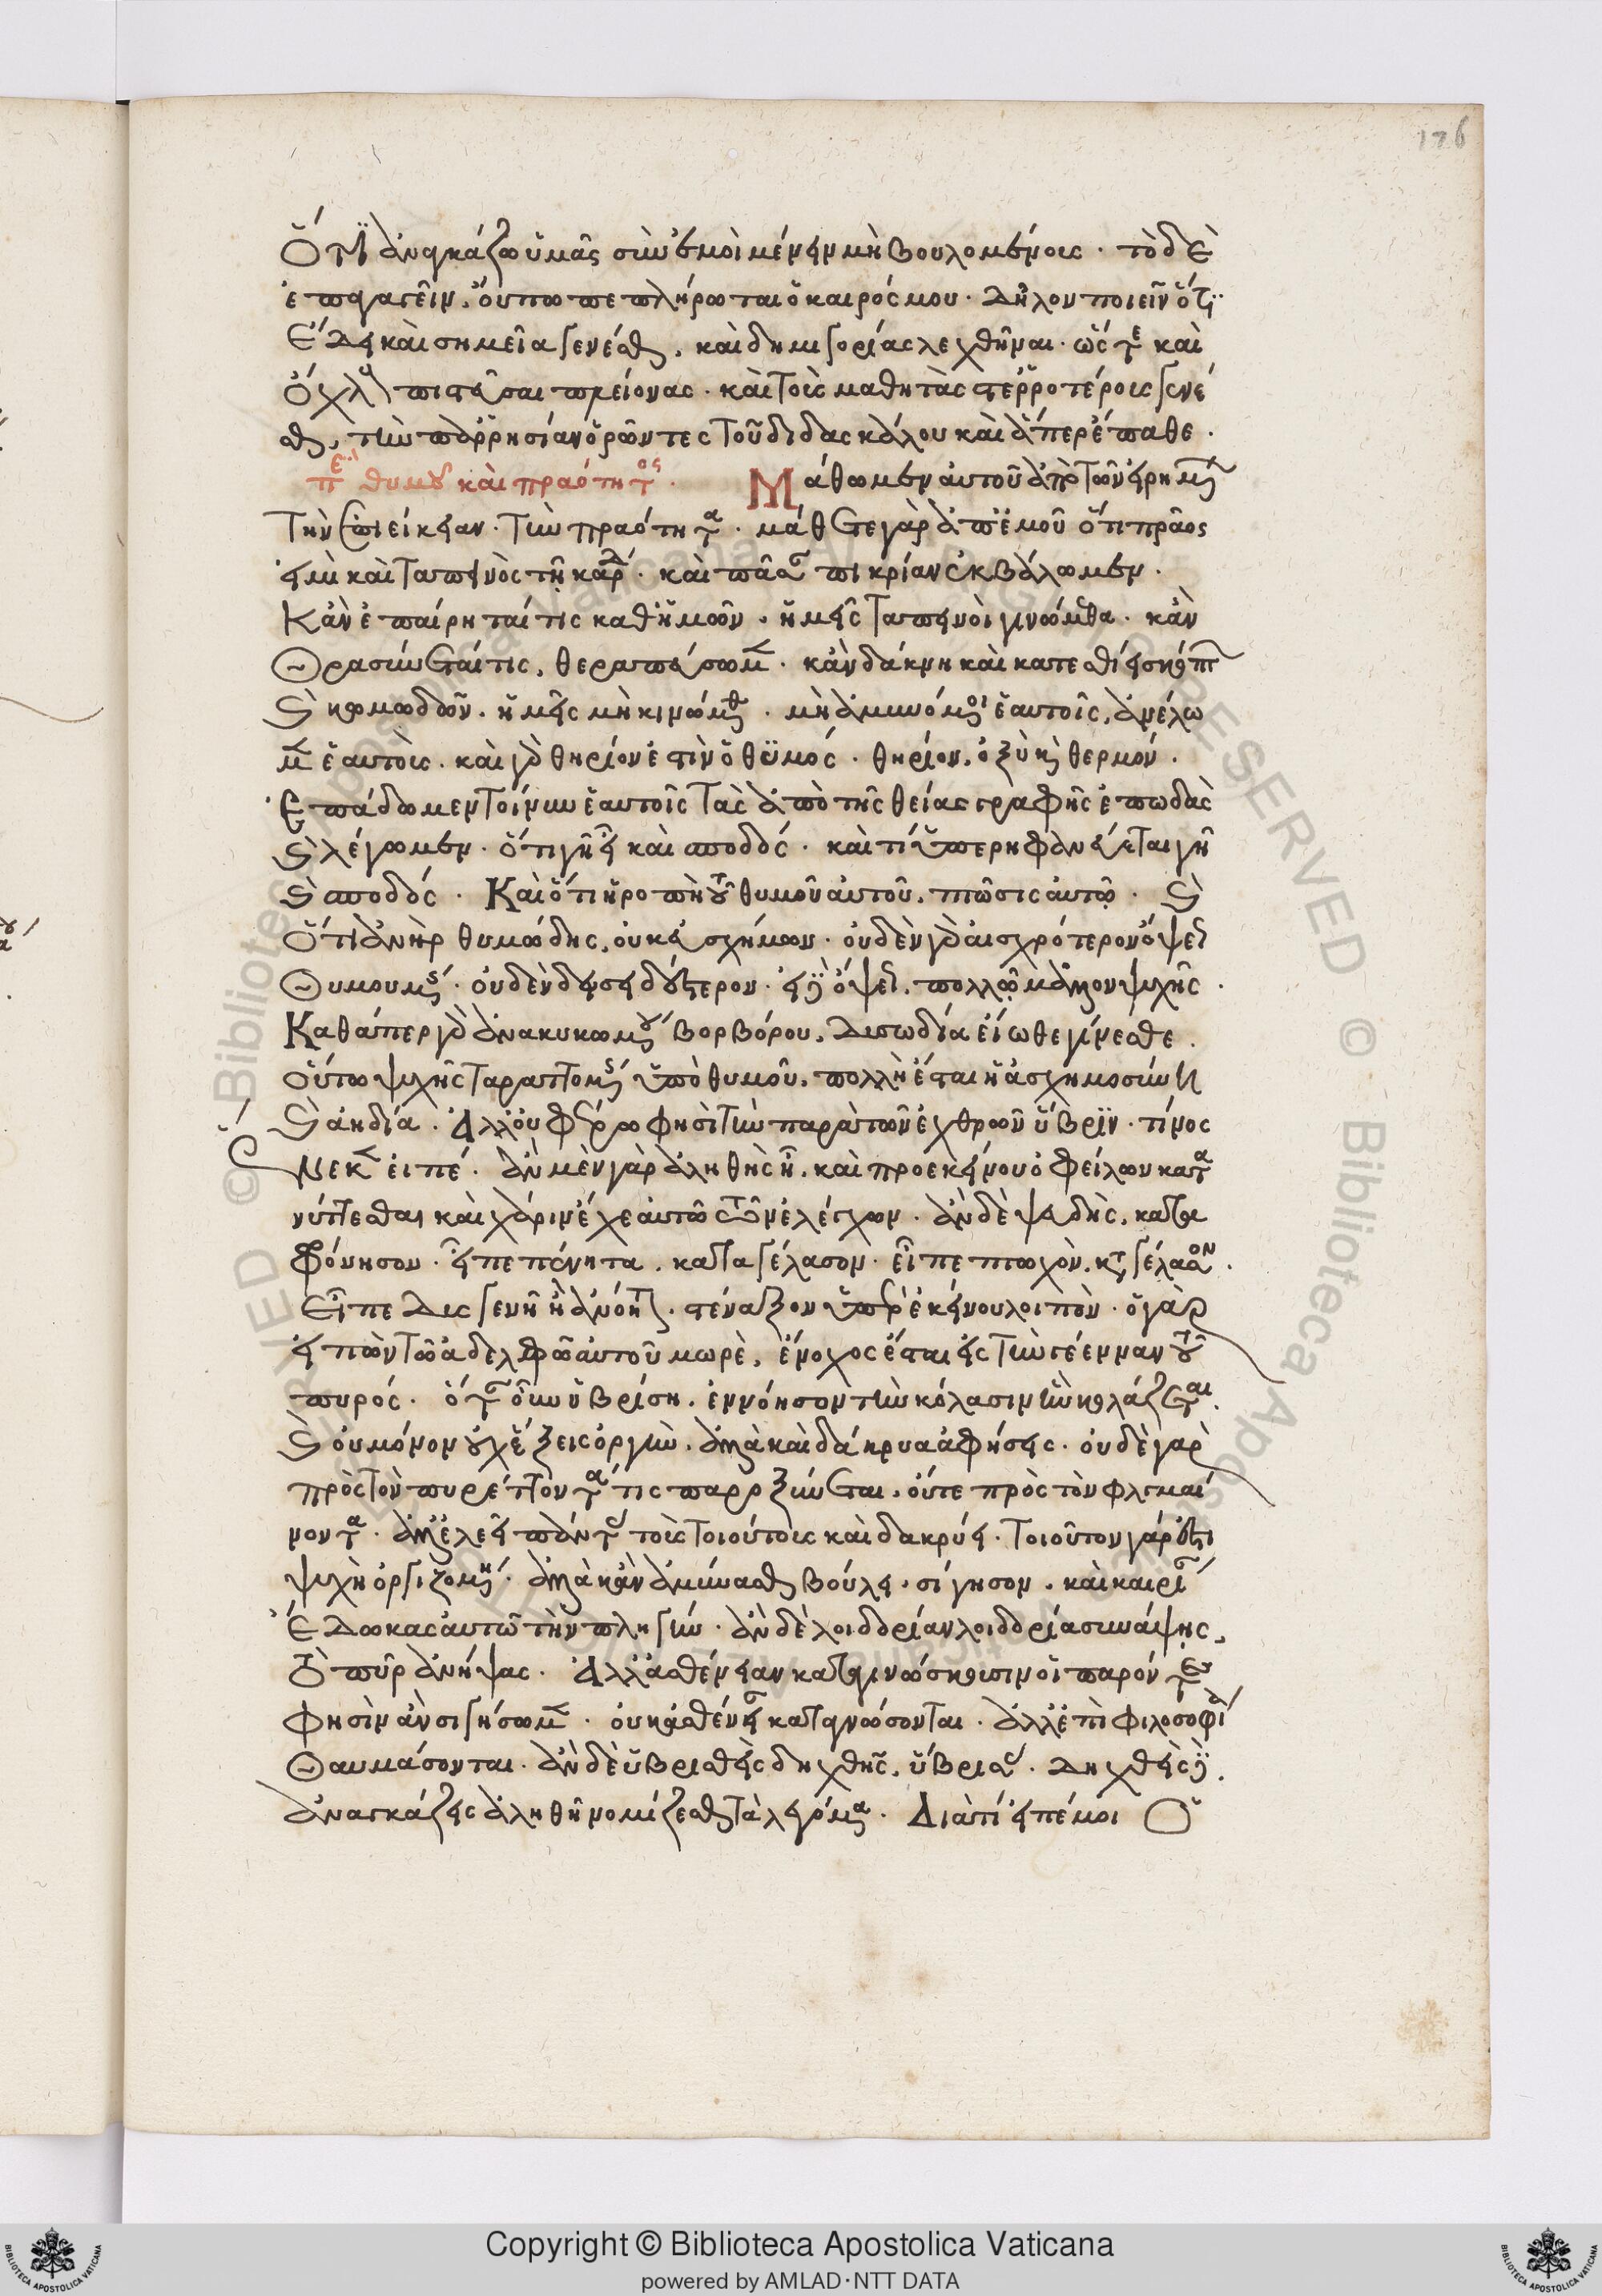 176
Ὅτι ἀναγκάζω ὑμᾶς σὺν ἐμοὶ μένειν μὴ βουλομένοις · τὸ δὲ
ἐπαγαγεῖν, οὔπω πεπλήρωται ὁ καιρός μου · δῆλον ποιεῖν ὅτι
ἔδει καὶ σημεῖα γενέσθαι, καὶ δημηγορίας λεχθῆναι · ὥστε καὶ
ὄχλου πιστεῦσαι πλείονας · καὶ τοὺς μαθητὰς στερροτέρους γενέ
σθαι, τὴν παρρησίαν ὁρῶντες τοῦ διδασκάλου καὶ ἅπερ ἔπαθε ·
περὶ θυμοῦ καὶ πραότητος · Μάθωμεν αὐτοῦ ἀπὸ τῶν εἰρημένων
τὴν ἐπιείκειαν · τὴν πραότητα · μάθετε γὰρ ἀπ' ἐμοῦ ὅτι πρᾶος
εἰμὶ καὶ ταπεινὸς τῇ καρδίᾳ · καὶ πᾶσαν πικρίαν ἐκβάλωμεν ·
Κἂν ἐπαίρηταί τις καθ' ἡμῶν, ἡμεῖς ταπεινοὶ γινώμεθα · κἂν
θρασύνηταί τις, θεραπεύσωμεν · κἂν δάκνῃ καὶ κατεσθίει σκώπτων
καὶ κωμῳδῶν, ἡμεῖς μὴ κινώμεθα · μὴ ἀμυνόμενοι ἑαυτοῖς, ἀνέλω
μεν ἑαυτοὺς · καὶ γὰρ θηρίον ἐστὶν ὁ θυμός · θηρίον, ὀξὺ καὶ θερμόν ·
Ἐπᾴδωμεν τοίνυν ἑαυτοῖς τὰς ἀπὸ τῆς θείας γραφῆς ἐπωδὰς
καὶ λέγωμεν · ὅτι γῆ εἶ καὶ σποδός · καὶ τί ὑπερηφανεύεται γῆ
καὶ σποδός · Καὶ ὅτι ἡ ῥοπὴ τοῦ θυμοῦ αὐτοῦ, πτῶσις αὐτῷ · καὶ
ὅτι ἀνὴρ θυμώδης, οὐκ εὐσχήμων · οὐδὲν γὰρ αἰσχρότερον ὄψεως
θυμουμένης · οὐδὲν δυσειδέστερον · εἰ δὲ ὄψεως, πολλῷ μᾶλλον ψυχῆς ·
Καθάπερ γὰρ ἀνακυκωμένου βορβόρου, δυσωδία εἴωθε γίνεσθαι ·
οὕτω ψυχῆς ταραττομένης ὑπὸ θυμοῦ, πολλὴ ἔσται ἡ ἀσχημοσύνη
καὶ ἀηδία · Ἀλλ' οὐ φέρω φησὶ τὴν παρὰ τῶν ἐχθρῶν ὕβριν · τίνος
ἕνεκεν εἰπέ · ἂν μὲν γὰρ ἀληθὴς ᾖ, καὶ πρὸ ἐκείνου ὀφείλων κατα
νύττεσθαι καὶ χάριν ἔχε αὐτῷ τῶν ἐλέγχων · ἂν δὲ ψευδὴς, κατα
φρόνησον · εἶπε πένητα, καταγέλασον · εἶπε πτωχὸν, καταγέλασον ·
Εἶπε δυσγενῆ ἢ ἀνόητον, στέναξον ὑπὲρ ἐκείνου λοιπὸν · ὁ γὰρ
εἰπὼν τῷ ἀδελφῷ αὐτοῦ μωρὲ, ἔνοχος ἔσται εἰς τὴν γέενναν τοῦ
πυρός · ὅταν οὖν ὑβρίσῃ, ἐννόησον τὴν κόλασιν ἣν κολάζεται ·
καὶ οὐ μόνον οὐχ ἕξεις ὀργὴν, ἀλλὰ καὶ δάκρυα ἀφήσεις · οὐδὲ γὰρ
πρὸς τὸν πυρέττοντα τις παροξύνεται, οὔτε πρὸς τὸν φλεγμαί
νοντα · ἀλλ' ἐλεεῖ πάντας τοὺς τοιούτους καὶ δακρύει · τοιοῦτον γάρ ἐστι
ψυχὴ ὀργιζομένη · ἀλλὰ κἂν ἀμύνασθαι βούλει, σίγησον, καὶ καιρίαν
ἔδωκας αὐτῷ τὴν πληγήν · ἂν δὲ λοιδορίαν λοιδορίᾳ συνάψῃς,
τὸ πῦρ ἀνῆψας · Ἀλλ' ἀσθένειαν καταγινώσκουσιν οἱ παρόντες
φησὶν ἂν σιγήσωμεν · οὐκ ἀσθένειαν καταγνώσονται · ἀλλ' ἐπὶ φιλοσοφίᾳ
θαυμάσονται · ἂν δὲ ὑβρισθεὶς δηχθῇς, ὕβρισας · δηχθεὶς δὲ,
ἀναγκάζεις ἀληθῆ νομίζεσθαι τὰ λεγόμενα · Διατί εἰπέ μοι ὁ
Copyright © Biblioteca Apostolica Vaticana
powered by AMLAD·NTT DATA